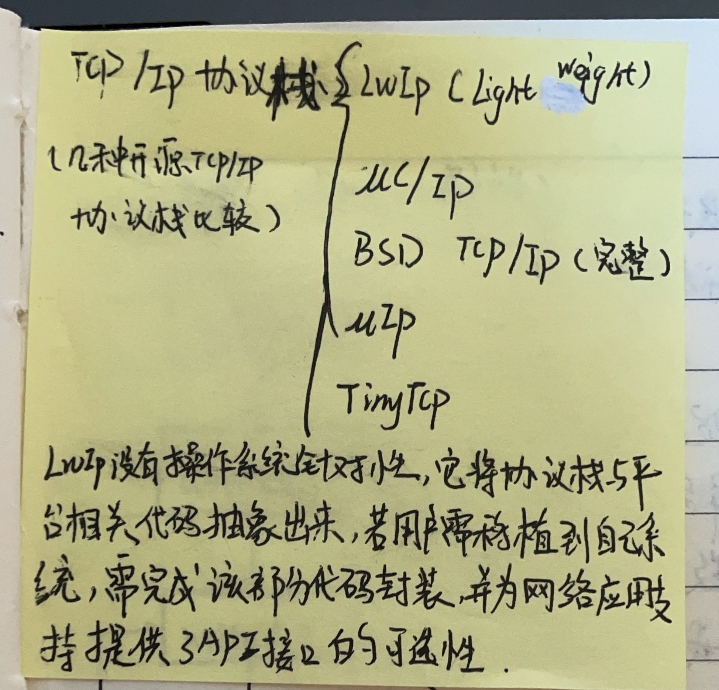 TCP/Ip 协议栈 { LwIp (Light weight)
(几种开源TCP/IP
协议栈比较)
uC/Ip
BSD TCP/IP (完整)
uIp
TinyTcp
LwIp没有操作系统针对性,它将协议栈与平
台相关代码抽象出来,若用户需移植到自己系
统,需完成该部分代码封装,并为网络应用支
持提供了API接口的可选性.